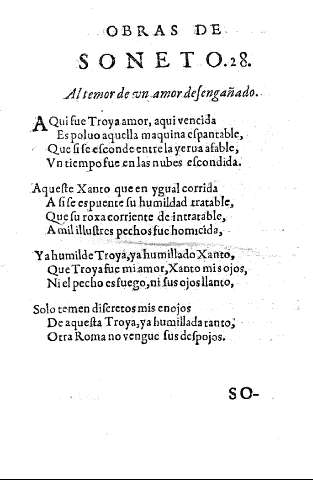 OBRAS DE
SONETO.28.
Al temor de vn amor desengañado.
AQui fue Troya amor, aqui vencida
Es poluo aquella maquina espantable,
Que si se esconde entre la yerua afable,
Vn tiempo fue en las nubes escondida.
Aqueste Xanto que en ygual corrida
A si se espuente su humildad tratable,
Que su roxa corriente de intratable,
A mil illustres pechos fue homicida,
Ya humilde Troya, ya humillado Xanto,
Que Troya fue mi amor, Xanto mis ojos,
Ni el pecho es fuego, ni sus ojos llanto,
Solo temen discretos mis enojos
De aquesta Troya, ya humillada tanto,
Otra Roma no vengue sus despojos.
SO-